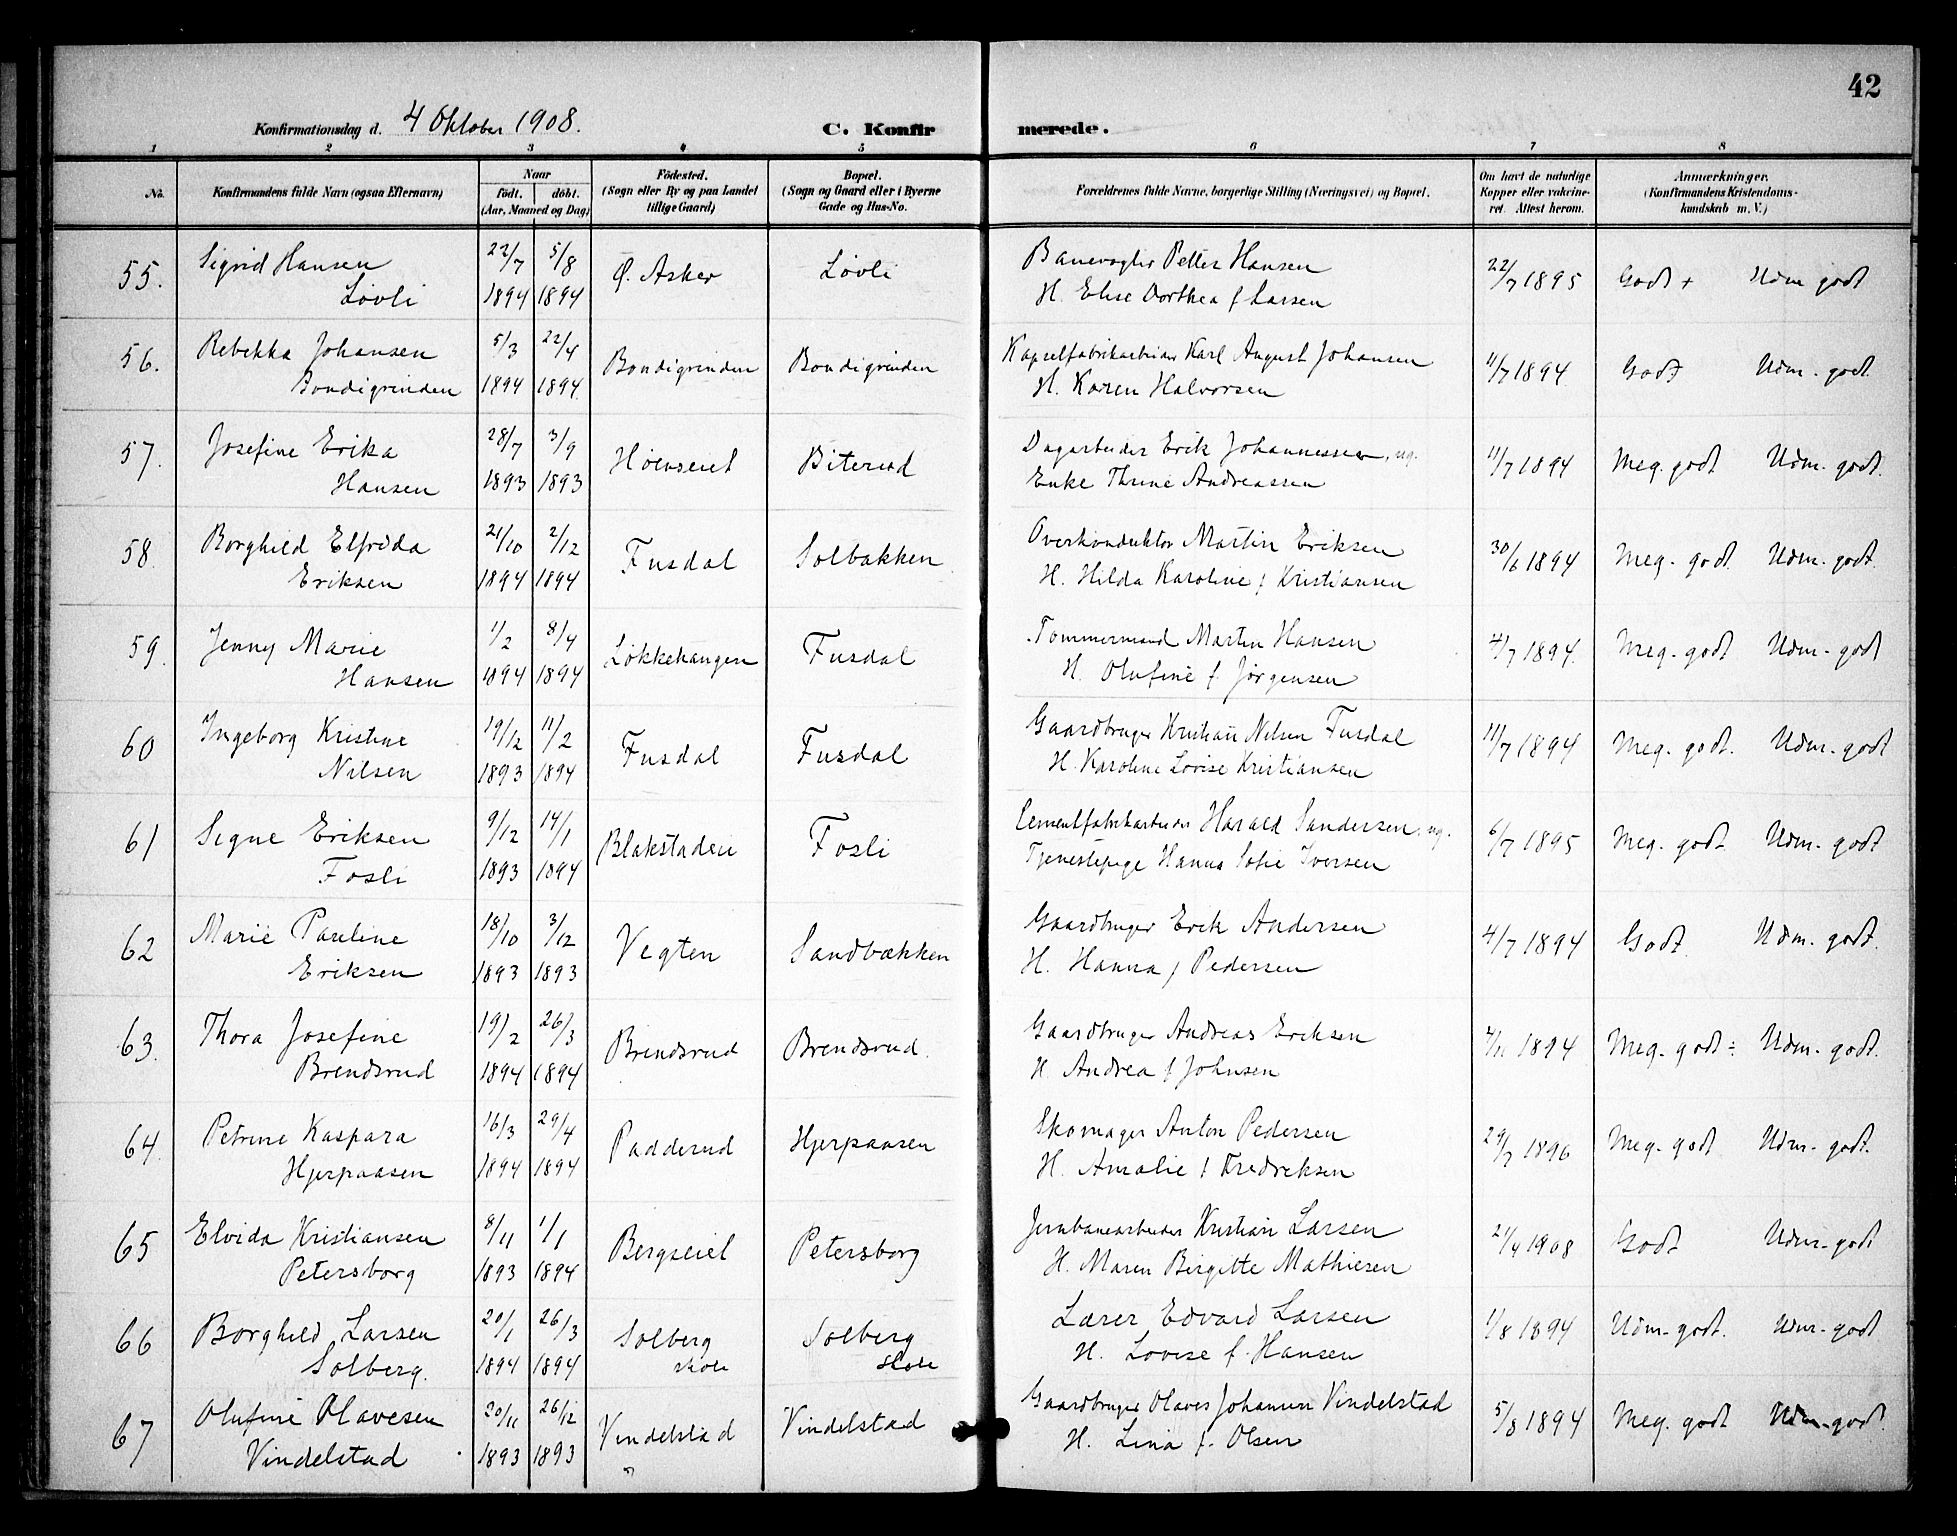 42
Konfirmationsdag d. 4 Oktober 1908.
C. Konfirmerede.
1 2 3 4 5 6 7 8
No.
Konfirmandens fulde Navn (ogsaa Efternavn)
Naar
født. døbt.
(Aar, Maaned og Dag)
Fødested.
(Sogn eller By og paa Landet
tillige Gaard)
Bopæl.
(Sogn og Gaard eller i Byerne
Gade og Hus-No.
Forældrenes fulde Navne, borgerlige Stilling (Næringsvei) og Bopæl.
Om havt de naturlige
Kopper eller vakcine-
ret. Attest herom.
Anmærkninger.
(Konfirmandens Kristendoms-
kundskab m. V.)
55. Sigrid Hansen 22/7 5/8 Ø. Asker Løvli Banevogter Petter Hansen 22/7 1895 Godt + Udm godt
Løvli 1894 1894 H. Elise Dorthea f Larsen
56. Rebekka Johansen 5/3 22/4 Bondigrinden Bondigrinden Kapselfabrikarbeider Karl August Johansen 11/7 1894 Godt Udm. godt.
Bondigrinden 1894 1894. H. Karen Halvorsen
57. Josefine Erika 28/7 3/9 Høenseiet Biterud Dagarbeider Erik Johannessen, ug. 11/7 1894 Meg. godt Udm. godt.
Hansen 1893 1893 Enke Thrine Andreassen
58. Borghild Elfrida 21/10 2/12 Fusdal Solbakken Overkonduktør Martin Eriksen 30/6 1894 Meg. godt Udm. godt.
Eriksen 1894 1894 H. Hilda Karoline f Kristiansen
59. Jenny Marie 1/2 8/4 Løkkehaugen Fusdal Tømmermand Martin Hansen 4/7 1894. Meg. godt Udm. godt
Hansen 1894 1894 H. Olufine f. Jørgensen
60 Ingeborg Kristine 19/12 11/2 Fusdal Fusdal Gaardbruger Kristian Nilsen Fusdal 11/7 1894 Meg. godt. Udm. godt
Nilsen 1893 1894 H. Karoline Lovise Kristiansen
61 Signe Eriksen 9/12 14/1 Blakstadeie Fosli Cementfabrikarbeider Harald Sandersen, ug. 6/7 1895 Meg. godt Udm. godt
Fosli 1893 1894 Tjenestepige Hanna Sofie Iversen
62 Marie Pauline 18/10 3/12 Vegten Sandbækken Gaardbruger Erik Andersen 4/7 1894 Godt. Udm. godt.
Eriksen 1893 1893 H. Hanna f Pedersen
63. Thora Josefine 19/2 26/3 Brendsrud Brendsrud. Gaardbruger Andreas Eriksen 4/11 1894 Meg. godt ÷ Udm. godt.
Brendsrud 1894 1894 H. Andrea f Johnsen
64. Petrine Kaspara 16/3 29/4 Padderud Hjerpaasen Skomager Anton Pedersen 29/7 1896 Meg. godt Udm. godt.
Hjerpaasen 1894 1894 H. Amalie f Fredriksen
65 Elvida Kristiansen 8/11 1/1 Bergseiet Petersborg Jernbanearbeider Kristian Larsen 21/4 1908 Godt Udm. godt
Petersborg 1893 1894 H. Maren Birgitte Mathiesen
66 Borghild Larsen 20/1 26/3 Solberg skole Solberg skole Lærer Edvard Larsen 1/8 1894 Udm. godt. Udm. godt
Solberg. 1894 1894 H. Lovise f. Hansen
67 Olufine Olavesen 20/11 26/12 Vindelstad Vindelstad Gaardbruger Olaves Johannesen Vindelstad 5/8 1894 Meg. godt Udm. godt.
Vindelstad 1893 1893 H. Lina f. Olsen